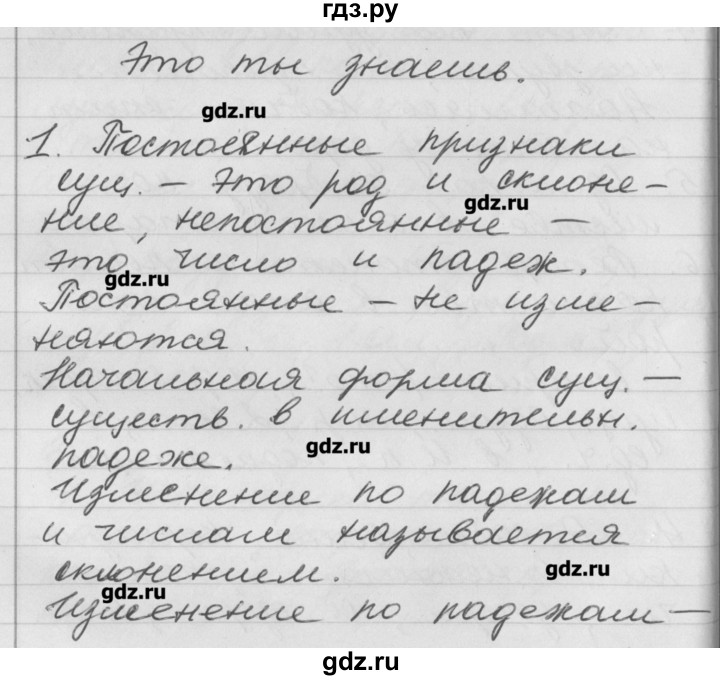 гдз.ру
Это ты знаешь.
gdz.ru
1. Постоянные признаки
сущ. – это род и склоне-
gdz.ru
ние, непостоянные –
это число и падеж.
gdz.ru
Постоянные – не изме-
няются.
Начальная форма сущ. –
существ. в именительн.
gdz.ru
падеже.
Изменение по падежам
и числам называется
склонением.
gdz.ru
gdz.ru
Изменение по падежам –
gdz.ru